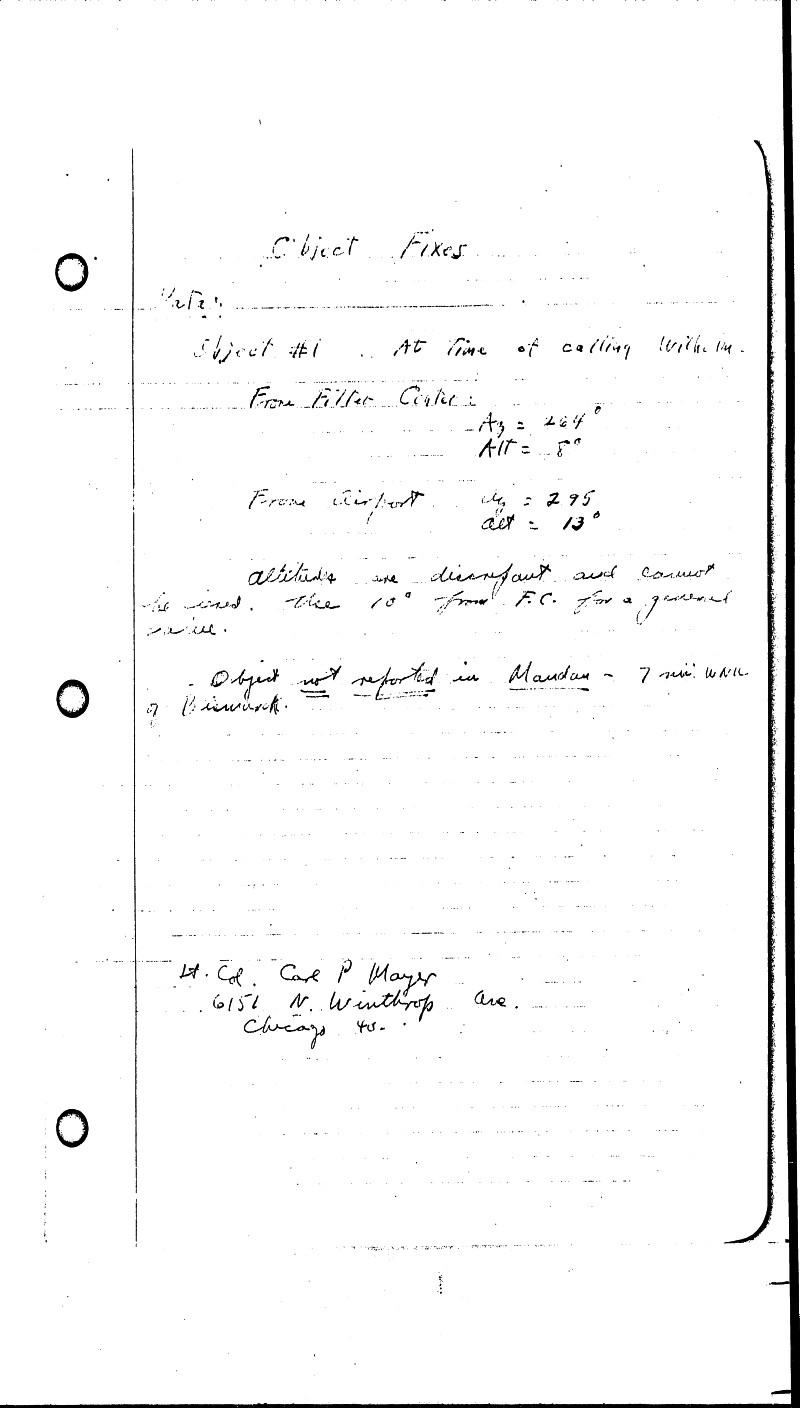 Object Fixes
Data:
Object #1 . At Time of calling Wilhelm.
From Filter Center:
Az = 264°
Alt = 8°
From Airport Az = 295
alt = 13°
Altitudes are discrepant and cannot
be used. Use 10° from F.C. for a general
value.
Object not reported in Mandan - 7 mi. WNW
of Bismarck.
Lt. Col. Carl P Mayer
6151 N. Winthrop Ave.
Chicago